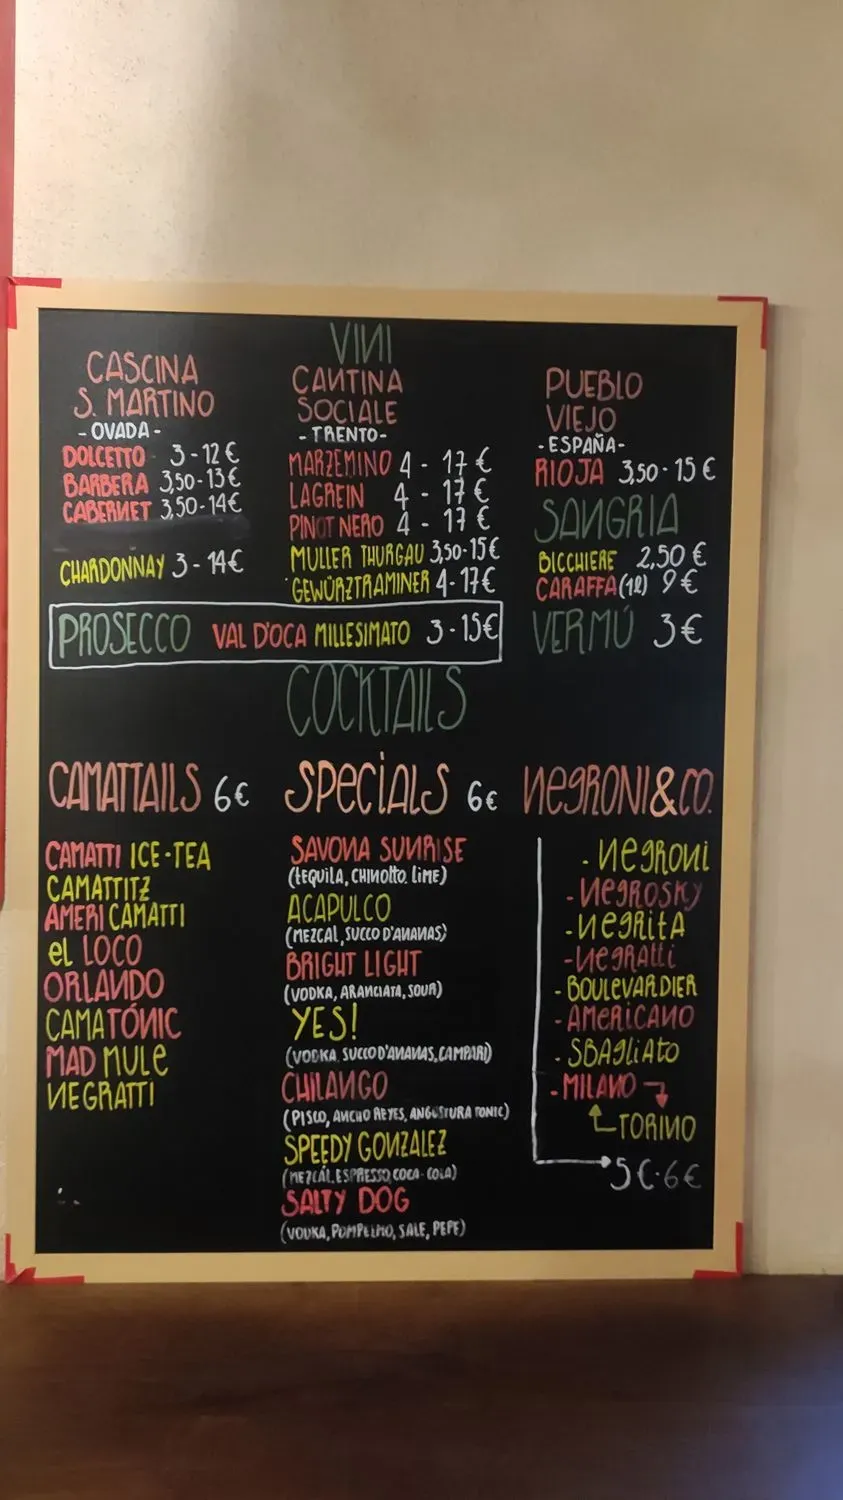 VINI
CASCINA
S. MARTINO
- OVADA -
DOLCETTO 3 - 12 €
BARBERA 3,50 - 13 €
CABERNET 3,50 - 14€
CHARDONNAY 3 - 14€
CANTINA
SOCIALE
- TRENTO -
MARZEMINO 4 - 17 €
LAGREIN 4 - 17 €
PINOT NERO 4 - 17 €
MULLER THURGAU 3,50 - 15€
GEWÜRZTRAMINER 4 - 17€
PUEBLO
VIEJO
- ESPAÑA -
RIOJA 3,50 - 15 €
SANGRIA
BICCHIERE 2,50 €
CARAFFA (1l) 9 €
VERMÚ 3€
PROSECCO VAL D'OCA MILLESIMATO 3 - 15€
COCKTAILS
CAMATTAILS 6€
CAMATTI ICE-TEA
CAMATTITZ
AMERICAMATTI
eL LOCO
ORLANDO
CAMATÓNIC
MAD MULe
NEGRATTI
SPeciALS 6€
SAVONA SUNRISE
(tEQUiLA, CHiNOTTO. LiME)
ACAPULCO
(MEZCAL, SUCCO D'ANANAS)
BRIGHT LIGHT
(VODKA, ARANCIATA, SOUR)
YES!
(VODKA, SUCCO D'ANANAS, CAMPARI)
CHILANGO
(PISCO, ANCHO REYES, ANGOSTURA TONIC)
SPEEDY GONZALEZ
(MEZCAL, ESPRESSO, COCA-COLA)
SALTY DOG
(VODKA, POMPELMO, SALE, PEPE)
NegRONI & CO.
- Negroni
- NegROSKY
- NegRitA
- NegRAtti
- BOULevARDIER
- AMeRICANO
- SBAgliAto
- MILANO
TORINO
5 € - 6 €